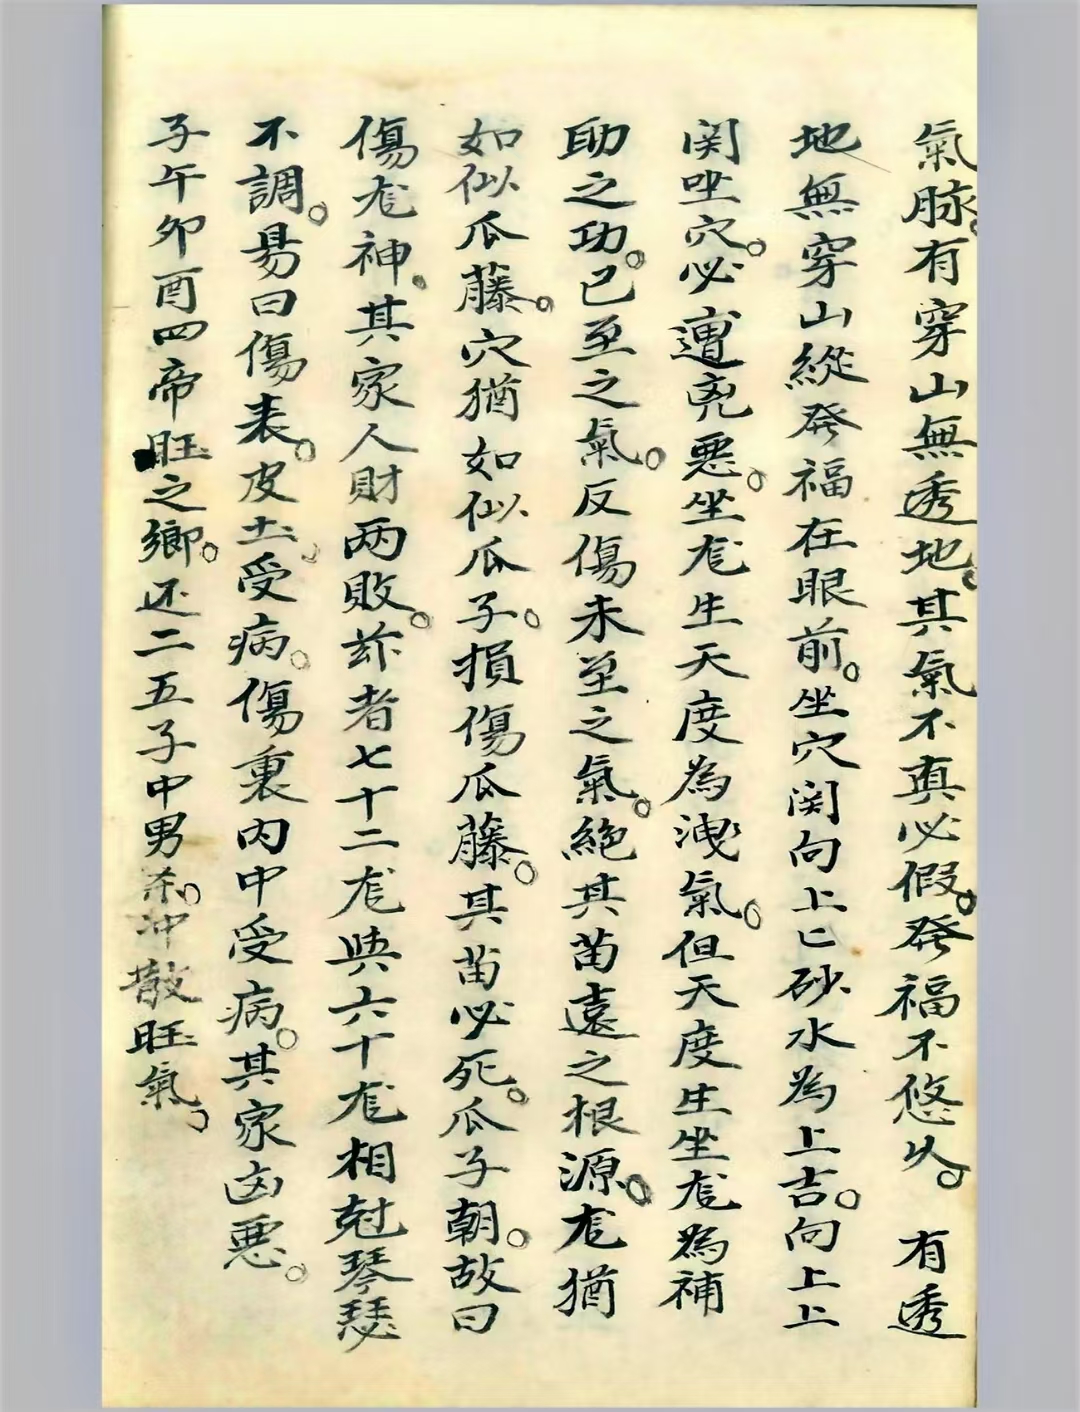 氣脉。有穿山無透地。其氣不真必假。発福不悠久。有透
地無穿山縱発福在眼前。坐穴関向上匕砂水為上吉。向上上
関坐穴。必遭兇惡。坐尨生天度為洩氣。但天度生坐尨為補
助之功。已至之氣。反傷未至之氣。絕其苗遠之根源。尨猶
如似瓜藤。穴猶如似瓜子。損傷瓜藤。其苗必死。瓜子朝。故曰
傷尨神。其家人財两敗。茈者七十二尨與六十尨相尅琴瑟
不調。昜曰傷表。皮土受病。傷裏內中受病。其家凶惡。
子午卯酉四帝旺之鄉。还二五子中男杀。冲散旺氣。